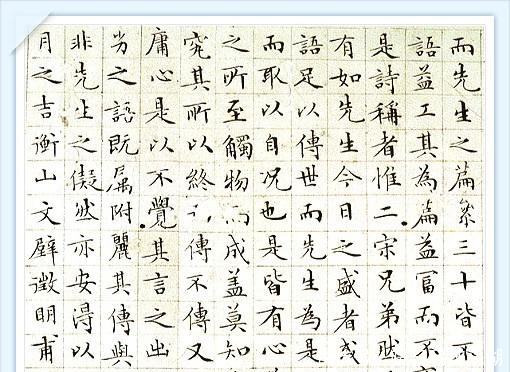 而先生之篇累三十皆不
語益工其為篇益富而不窮
是詩稱者惟二宋兄弟然
有如先生今日之盛者或
語足以傳世而先生為是
而取以自况也是皆有心
之所至觸物而成盖莫知
究其所以終傳不傳又
庸心是以不覺其言之出
劣之語既属附麗其傳與
非先生之儗然亦安得以
月之吉衡山文壁徵明甫